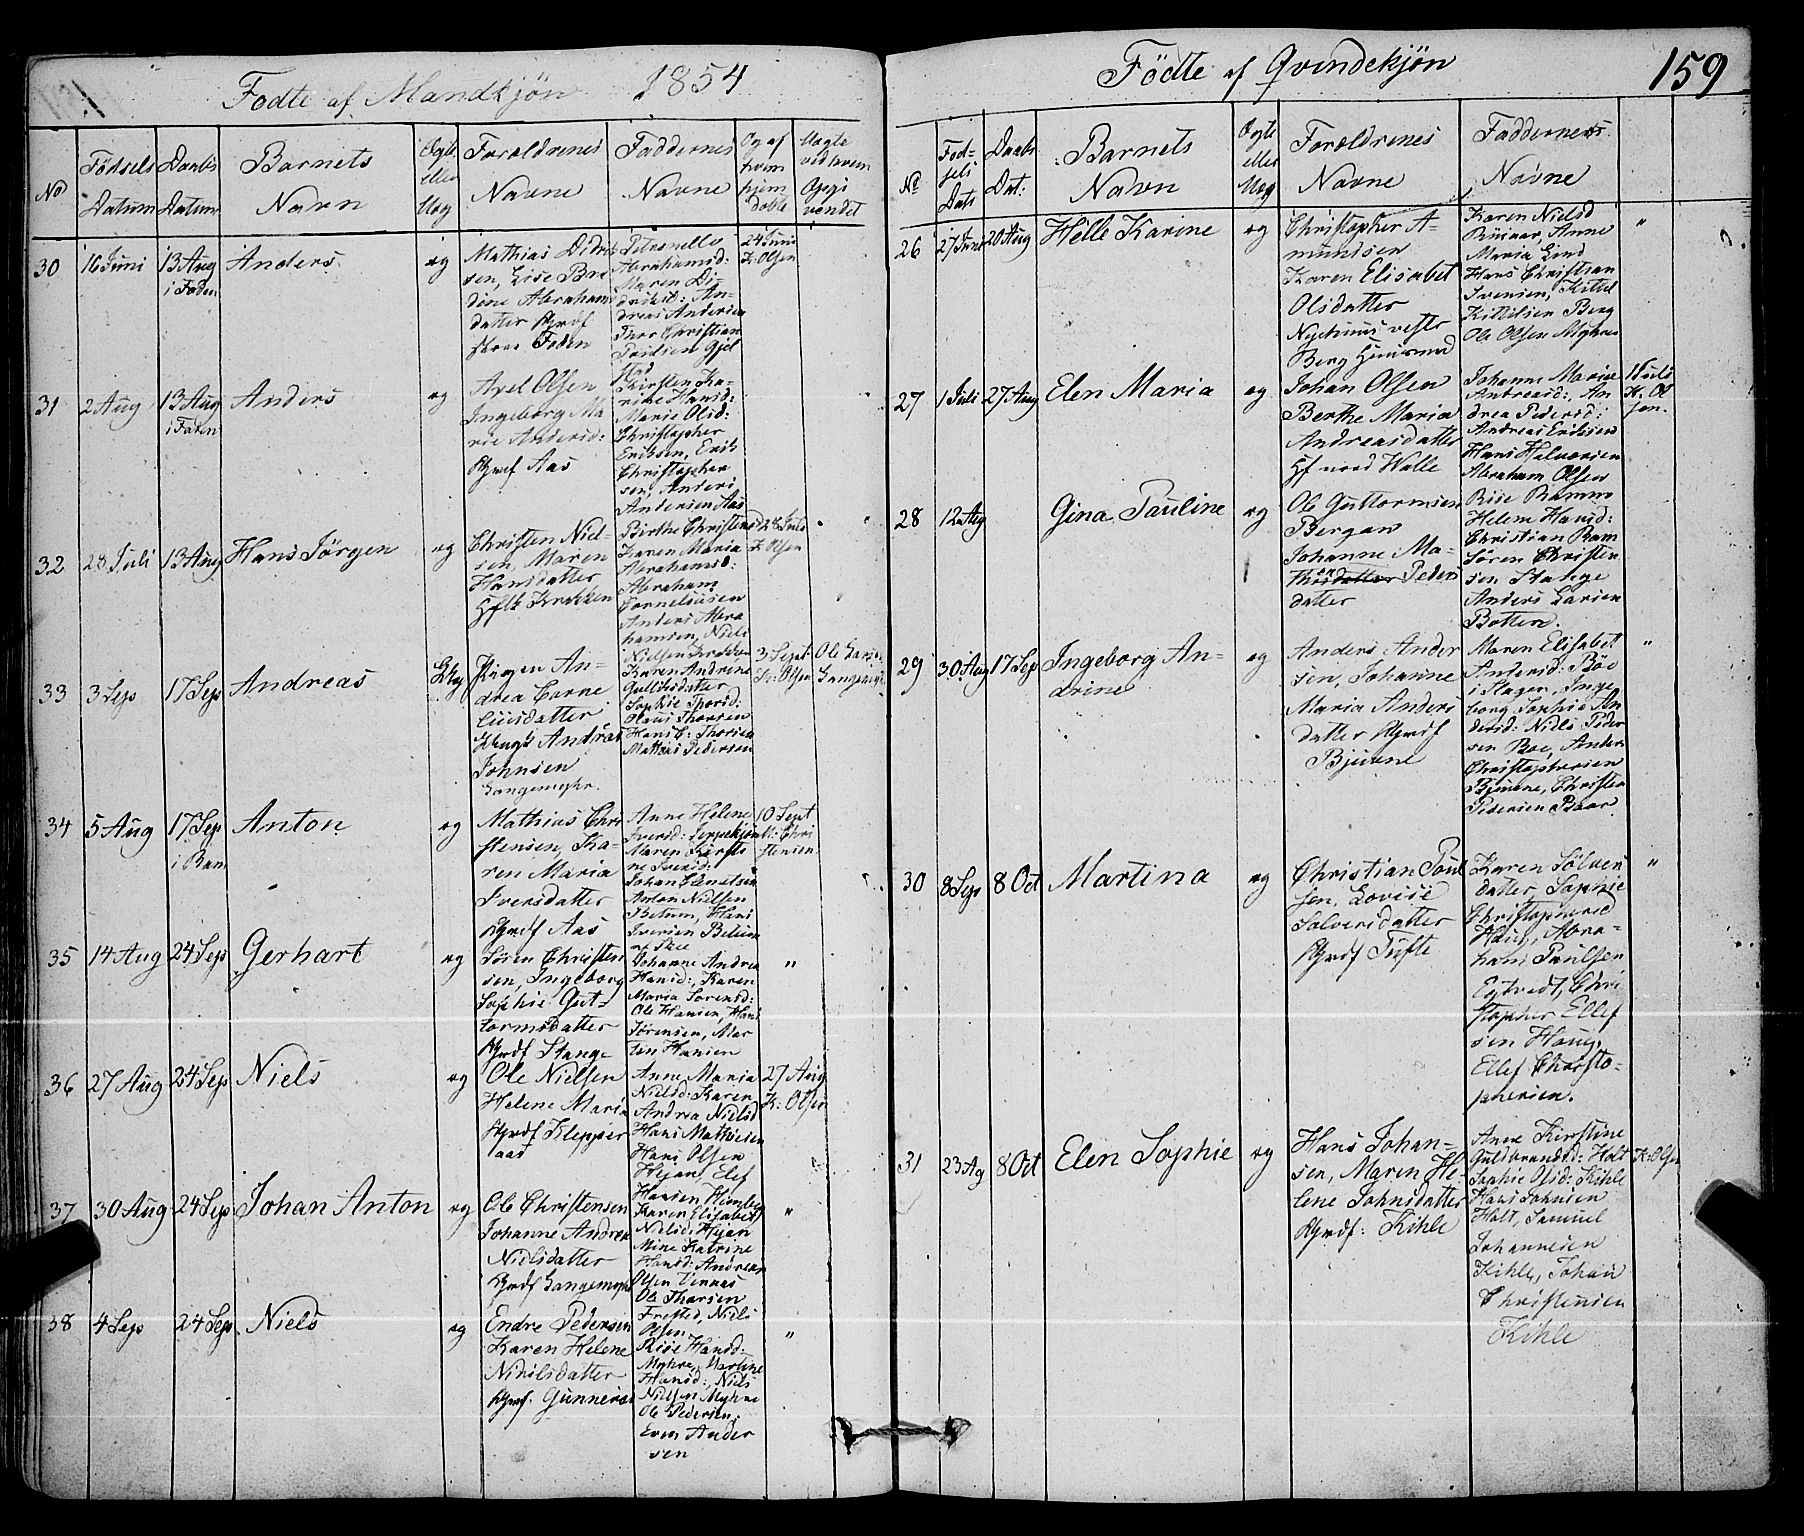 Fødte af Mandkjøn 1854
No
Fødsels Datum
Daabs Datum
Barnets Navn
Ægte eller Uæg
Forældrenes Navne
Faddernes Navne
Og af hvem hjem døbte
30
16 Juni
13 Aug
Anders
æg
Mathias Didrik
sen, Lise Ber
dine Abrahams
datter
Foden
Petronelle
Abrahamsd:
Maren Di
driksd: An-
dreas Andersen
Thor Christian
24 Juni
K: Olsen
31
2 Aug
13 Aug
Anders
æg
Axel Olsen
Ingeborg Ma
rie Andersd:
Gmdf Aas
Kirsten Ka-
rine Hansd:
Marie Olsd:
Christopher
Eriksen, Erik
Christopher
sen, Anders
Andersen Aas
32
28 Juli
13 Aug
Hans Jörgen
æg
Christen Niel-
sen, Maren
Hansdatter
Krakken
Birthe Christensd
Karen Maria
Abrahamsd:
Abraham
Corneliusen
Anders Abra
hamsen, Niels
Nielsen
28 Juli
K: Olsen
33
3 Sep
17 Sep
Andreas
Pigen An-
drea Corne
liusdatter
Ungk Andreas
Johnsen
Langemyhr.
Karen Andrine
Gulliksdatter
Sophie Thorsd:
Olaus Thorsen
Hans C: Thorsen
Mathias Pedersen
3 Sept
K: Olsen
Ole Larsen
Langemyhr
34
5 Aug
17 Sep
Anton
æg
Mathias Chri
stensen, Ka-
ren Maria
Iversdatter
Gmdf Aas
Anne Helene
Iversd:
Maren Kirsti
ne Iversd:
Johan Clemetsen
Anton Nielsen
Betum, Hans
Iversen Betum
10 Sept
M: Chri
stensen
35
14 Aug
24 Sep
Gerhart
æg
Sören Christen
sen, Ingeborg
Sophie Gut-
tormsdatter
Gmdf Stange
Johanne Andrea
Hansd:, Karen
Maria Sorensd:
Ole Hansen, Hans
Sørensen, Mar
tin Hansen
"
36
27 Aug
24 Sep
Niels
æg
Ole Nielsen
Helene Maria
Gmdf Klepper
aas
Anne Maria
Nielsd: Karen
Andrea Nielsd
Hans Mathisen
Hans Olsen
Hjan, Elef
Hansen
27 Aug
K: Olsen
37
30 Aug
24 Sep
Johan Anton
æg
Ole Christensen
Johanne Andrea
Nielsdatter
Gmdf Langemyhr
Karen Elisabet
Nielsd: Hjan
Mine Katrine
Hansd: Andreas
Olsen
Ole Thorsen
"
38
4 Sep
24 Sep
Niels
æg
Endre Pedersen
Karen Helene
Nihilsdatter
Gmdf. Gunneraas
Frested, Niels
Olsen
Hansd:
Myhre, Martine
Hansd:, Niels
Nielsen Myhre
Ole Pedersen,
Even Ander
sen
"
Fødte af Qvindekjøn
159
No
Fød-
sels
Dat:
Daabs
Dat:
Barnets
Navn
Ægte
eller
Uæg
Forældrenes
Navne
Faddernes
Navne
26
27 Juni
20 Aug
Helle Karine
æg
Christopher A-
mundsen
Karen Elisabet
Olsdatter
Nyehuus vestre
Berg Huusmd
Karen Nielsd
Anne
Maria Lind
Hans Christian
Svensen, Kittel
Kittilsen Berg
Ole Olsen Myhre
"
27
1 Juli
27 Aug
Elen Maria
æg
Johan Olsen
Berthe Maria
Andreasdatter
Gf nord Walle
Johanne Marie
Andreasd: An
drea Pedersd:
Andreas Eriksen
Hans Halvorsen
Abraham Olsen
1 Juli
K: Ol
sen.
28
12 Aug
Gina Pauline
æg
Ole Guttormsen
Bergan
Johanne Ma-
Peders
datter
Helene Hansd:
Christian Ram
Sören Christen
sen Stange
Anders Larsen
Botten.
29
30 Aug
17 Sep
Ingeborg An-
drine
æg
Anders Ander
sen, Johanne
Maria Anders
datter Gmdf
Bjuerne
Maren Elisabet
Andersd: Böe
i Slagen, Inge
borg Sophie An
dersd: Niels Peder
sen Boe, Anders
Christophersen
Bjuerne, Christen
Pedersen Baar
"
30
8 Sep
8 Oct
Martina
æg
Christian Poul
sen, Lovise
Solversdatter
Gmdf Tufte
Karen Sölver
datter, Sophie
Christophersd
Haug, Abra-
ham Paulsen
Eqtvedt, Chri
stopher Ellef
sen Haug,
Ellef Christo-
phersen.
"
31
23 Ag
8 Oct
Elen Sophie
æg
Hans Johan-
sen, Maren He-
lene Johnsdatter
Gmdf: Kihle
Anne Kirstine
Guldbrandsd: Holt
Sophie Olsd: Kihle
Hans Johnsen
Holt, Samuel
Johannesen
Kihle, Johan
Christensen
Kihle
K: Olsen